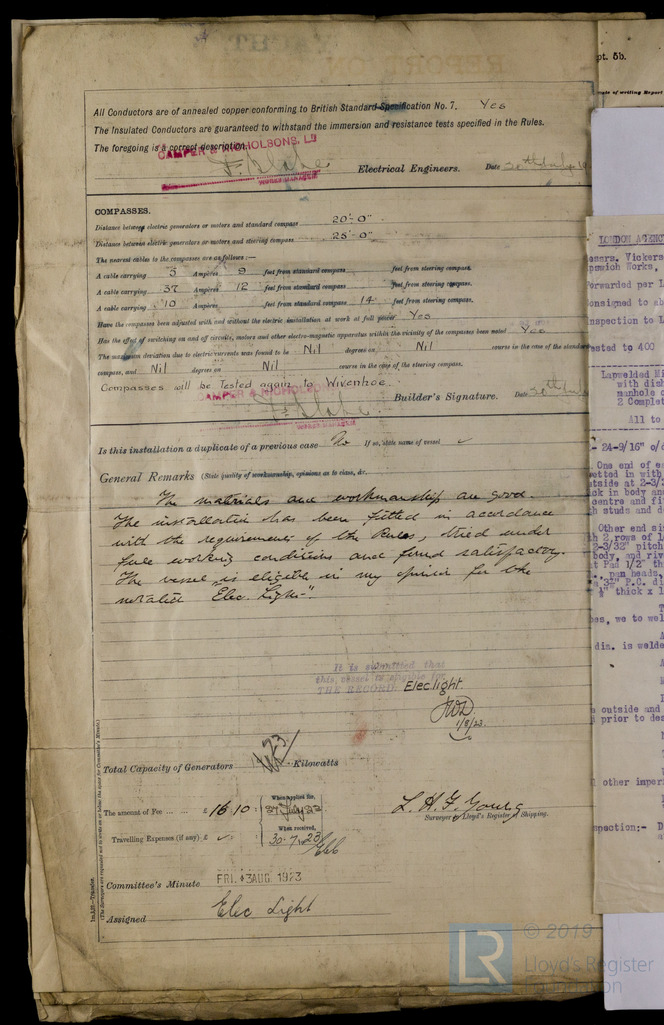 All Conductors are of annealed copper conforming to British Standard Specification No. 7. Yes
The Insulated Conductors are guaranteed to withstand the immersion and resistance tests specified in the Rules.
The foregoing is a correct description.
CAMPER & NICHOLSONS, LD
F. Blake
WORKS MANAGER
Electrical Engineers. Date 30th July 19
COMPASSES.
Distance between electric generators or motors and standard compass 20'-0"
Distance between electric generators or motors and steering compass 25'-0"
The nearest cables to the compasses are as follows:—
A cable carrying 5 Ampères 9 feet from standard compass feet from steering compass.
A cable carrying 37 Ampères 12 feet from standard compass feet from steering compass.
A cable carrying 10 Ampères feet from standard compass 14 feet from steering compass.
Have the compasses been adjusted with and without the electric installation at work at full power Yes
Has the effect of switching on and off circuits, motors and other electro-magnetic apparatus within the vicinity of the compasses been noted Yes
The maximum deviation due to electric currents was found to be Nil degrees on Nil course in the case of the standard
compass, and Nil degrees on Nil course in the case of the steering compass.
Compasses will be Tested again to Wivenhoe
CAMPER & NICHOLSONS
F. Blake
WORKS MANAGER
Builder's Signature. Date 30th July
Is this installation a duplicate of a previous case No If so, state name of vessel
General Remarks (State quality of workmanship, opinions as to class, &c.
The materials and workmanship are good.
The installation has been fitted in accordance
with the requirements of the Rules, tried under
full working conditions and found satisfactory.
The vessel is eligible in my opinion for the
notation "Elec. Light".
It is submitted that
this vessel is eligible for
THE RECORD. Elec light.
1/8/23.
Total Capacity of Generators Kilowatts
The amount of Fee ... ... £ 16.10.
When applied for,
27 July 23
Travelling Expenses (if any) £
When received,
30.7.23
L. H. F. Young
Surveyor to Lloyd's Register of Shipping.
Committee's Minute FRI. 3 AUG. 1923
Assigned Elec Light
Im.1.21.—Transfer.
pt. 5b.
ate of writing Report
LONDON AGENCY
Vickers
Ipswich Works,
Forwarded per L
onsigned to ab
nspection to L
ested to 400
Lapwelded
with dish
manhole
2 Complet
All to
24-9/16" o/d
One end of
otted in with
utside at 2-3/
ck in body and
centre and fi
h studs and
Other end
2 rows of
-3/32" pitch
body, and riv
at Pad 1/2" th
pan heads,
P.C. di
" thick x 1
es, we to wel
dia. is welde
outside and
prior to des
other imper
pection:- D
© 2019
LR
Lloyd's Register
Foundation